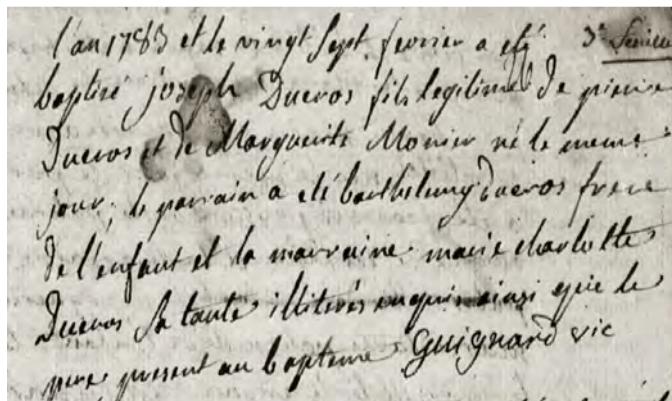 l'an 1783 et le vingt sept fevrier a eté 3e feuille
baptisé joseph Ducros fils legitime de pierre
Ducros et de Marguerite Monier né le meme
jour, le parrain a eté barthelemy ducros frere
de l'enfant et la marraine marie charlotte
Ducros sa tante illiterés enquis ainsi que le
pere present au bapteme Guignard vic